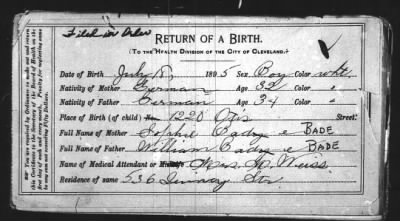 Filed in Order
RETURN OF A BIRTH.
(To the Health Division of the City of Cleveland.)
Date of Birth July 8, 1895 Sex Boy Color white
Nativity of Mother German Age 32 Color "
Nativity of Father German Age 34 Color "
Place of Birth (of child) No. 1220 Otis Street.
Full Name of Mother Sophie Bade BADE
Full Name of Father William Bade BADE
Name of Medical Attendant or Midwife Mrs. Weiss
Residence of same 536 Str
You are required by Ordinance to make out and return
this Certificate to the Secretary of the Board of Health on the
first day of each and every month. Penalty for neglecting same